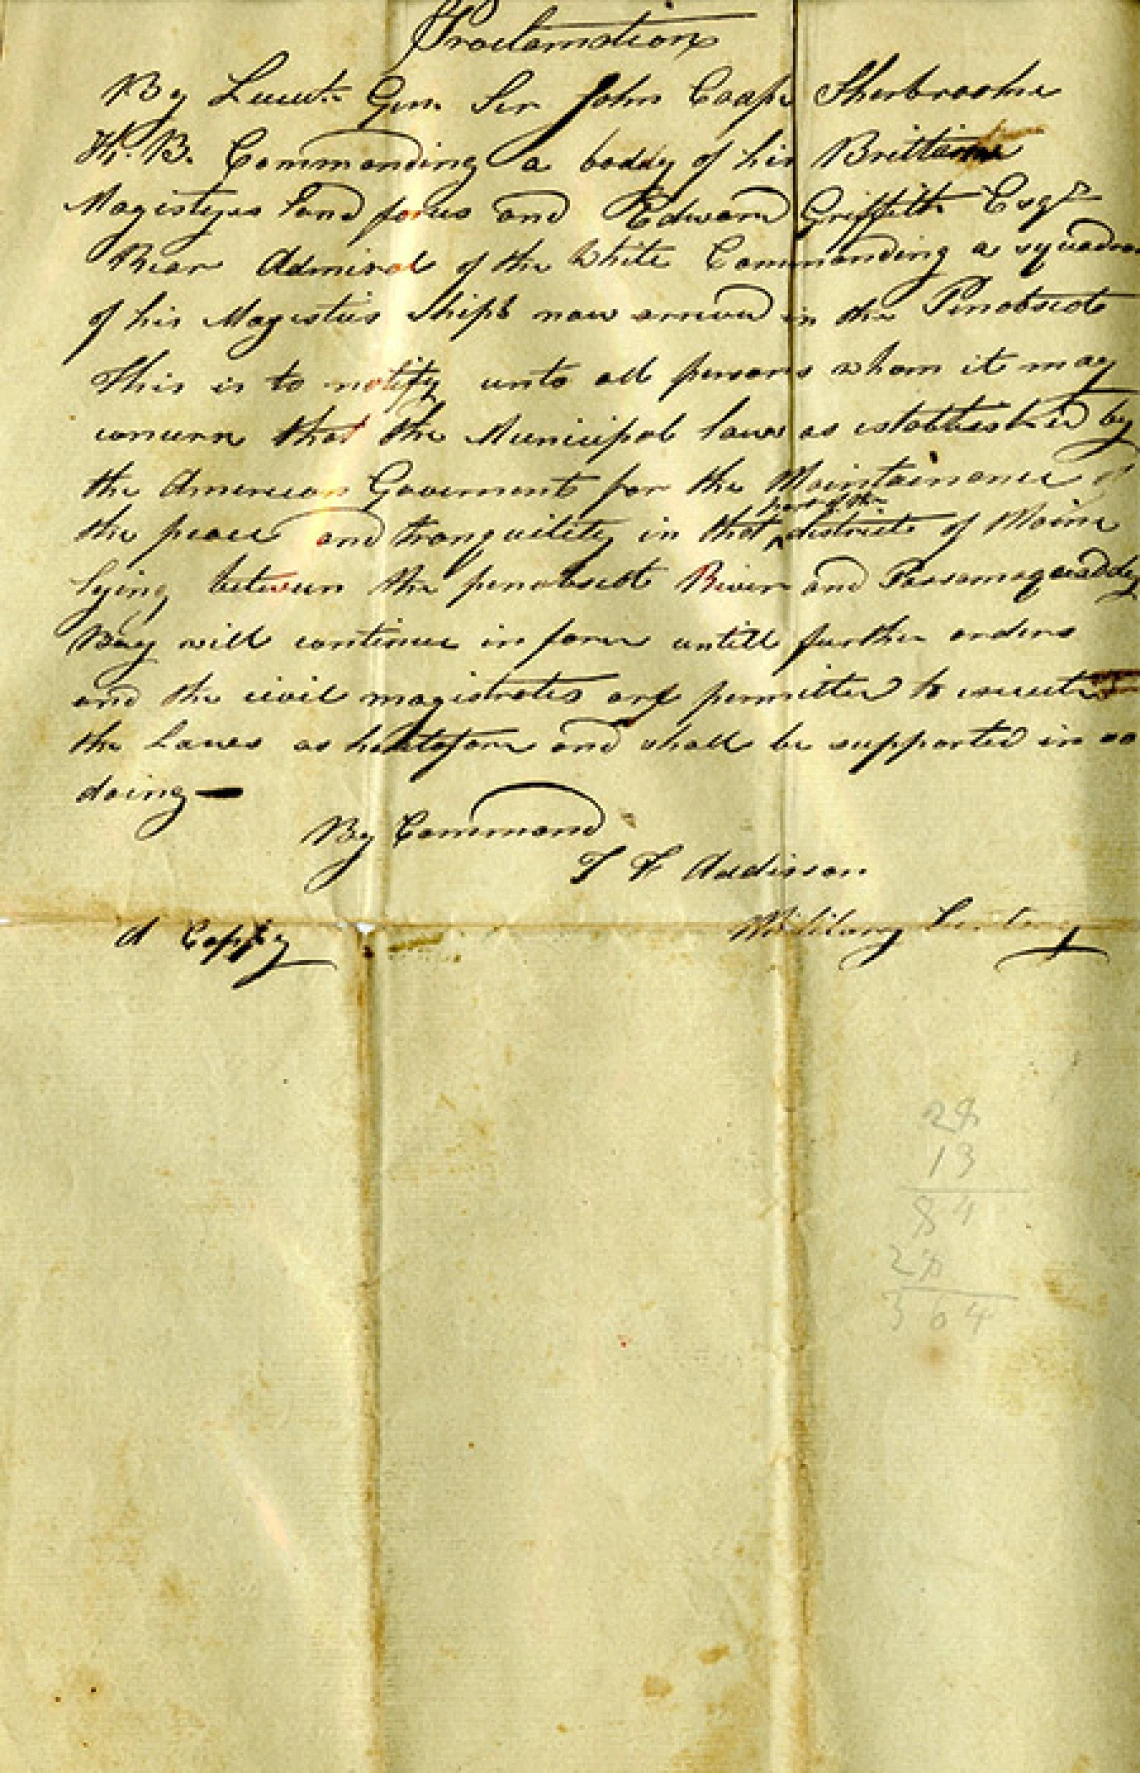 Proclamation
By Lieut. Gen. Sir John Coape Sherbrooke
K. B. Commanding a boddy of his Brittanic
Magistyes land forces and Edward Griffith Esqr
Rear Admiral of the White Commanding a squadron
of his Magisties ships now arrived in the Penobscot
This is to notify unto all persons whom it may
concern that the Municipal laws as established by
the American Goverment for the Maintainance of
part of the
the peace and tranquility in that district of Maine
lying between the penobscot River and Passamaquaddy
Bay will continue in force untill further orders
and the civil magistrates are permitted to execute
the Laws as heretofore and shall be supported in so
doing—
By Command
T F Addison
A Coppy Military
28
13
84
28
364